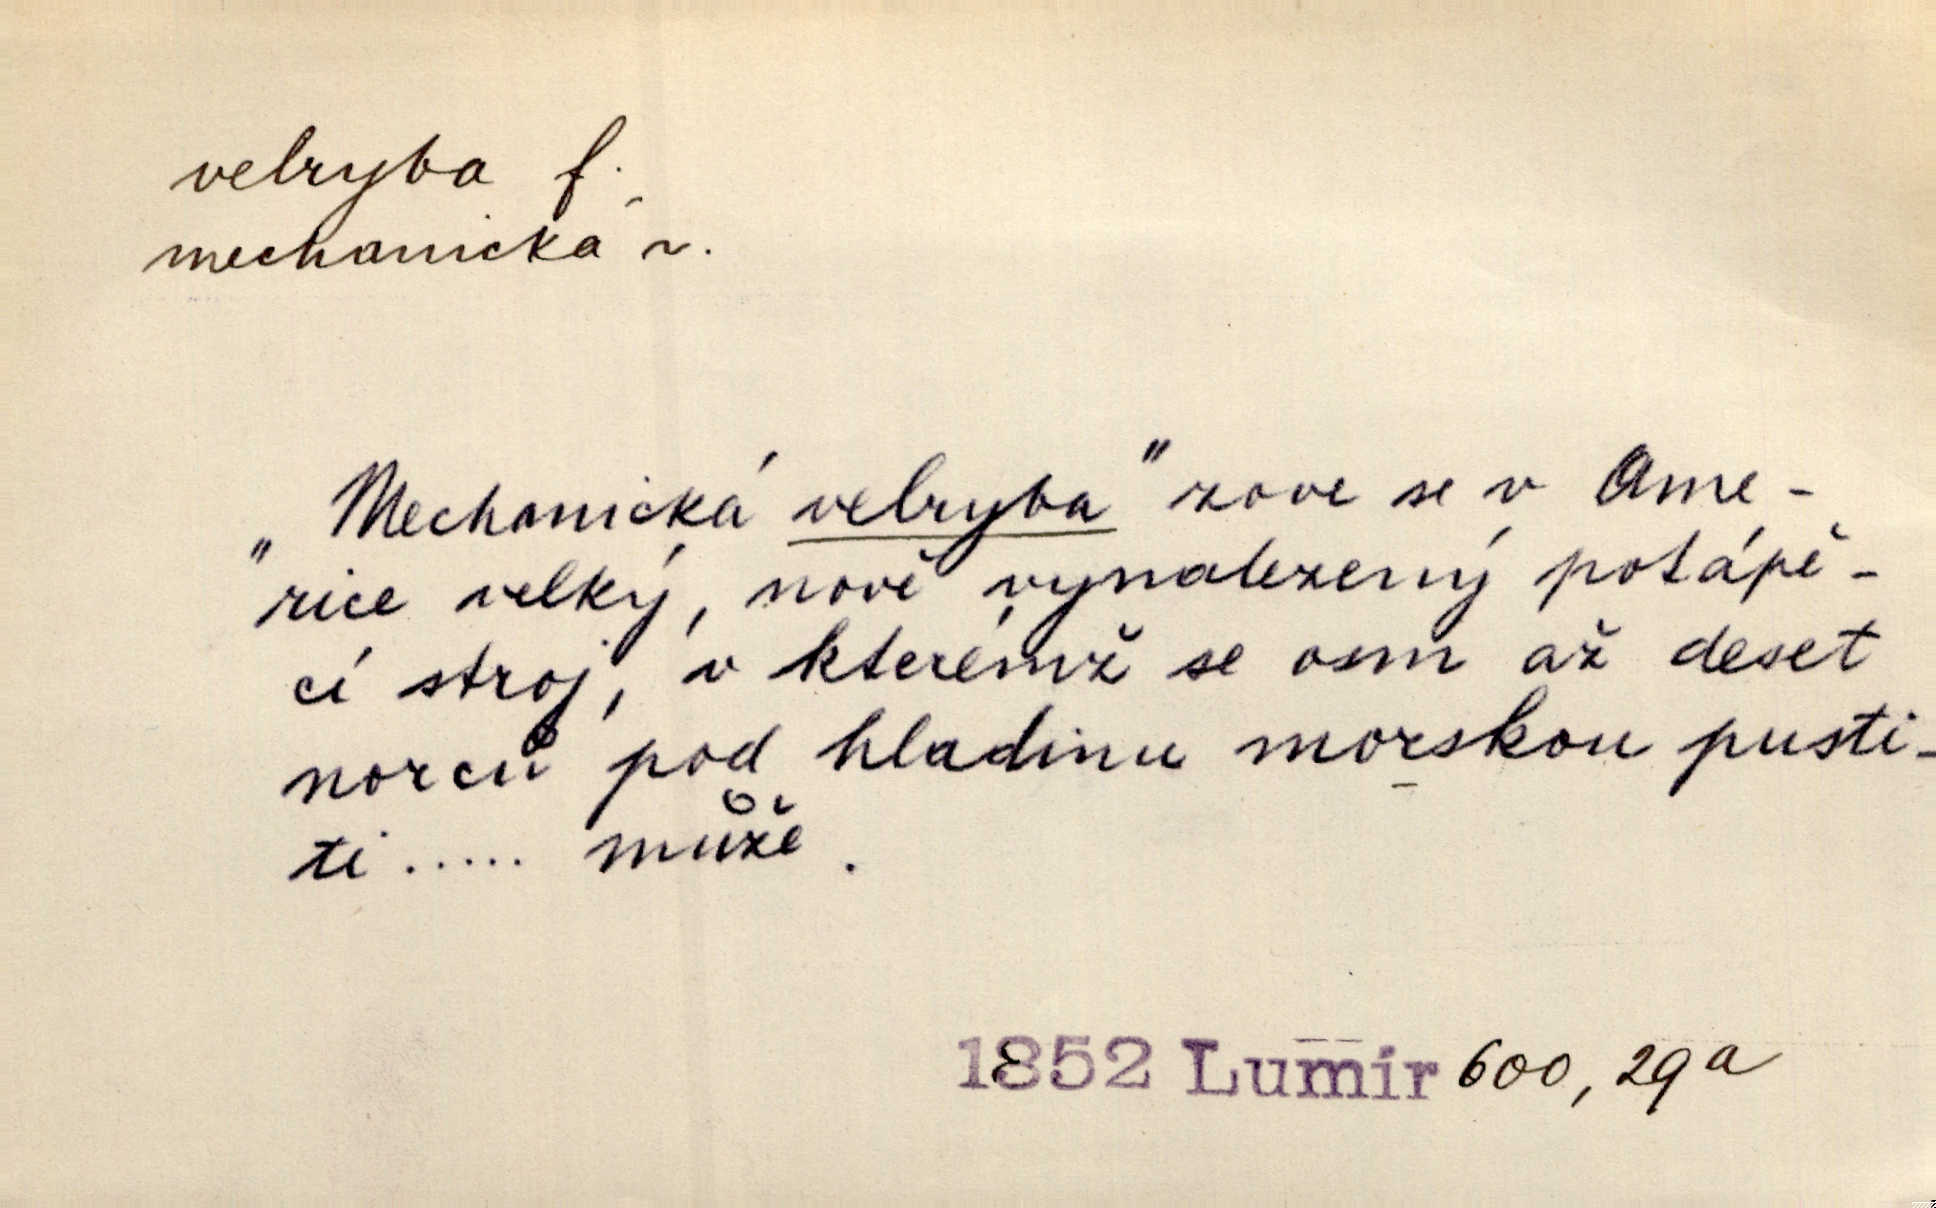 velryba f.
mechanická v.
„Mechanická velryba" zove se v Ame-
rice velký, nově vynalezený potápě-
cí stroj, v kterémž se osm až deset
norců pod hladinu morskou pusti-
ti ..... může.
1852 Lumír 600, 29a